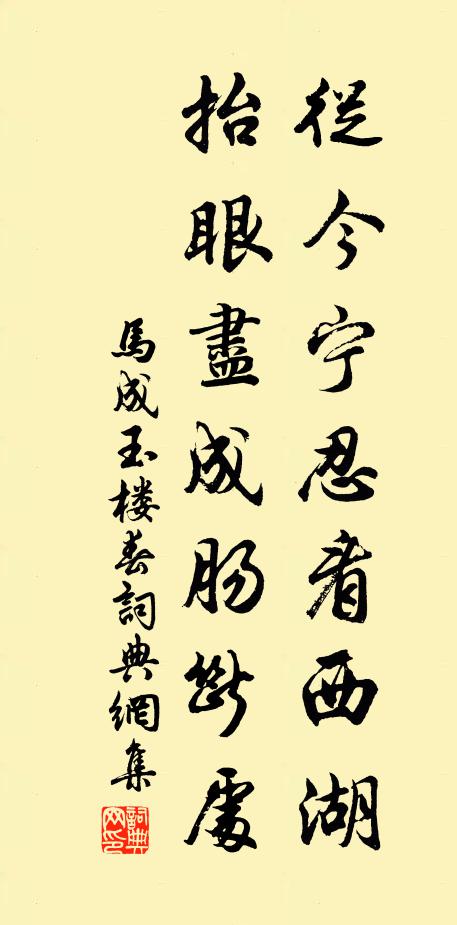 從今宁忍看西湖
抬眼盡成肠斷處
馬成玉楼春詞典網集
詞典网印